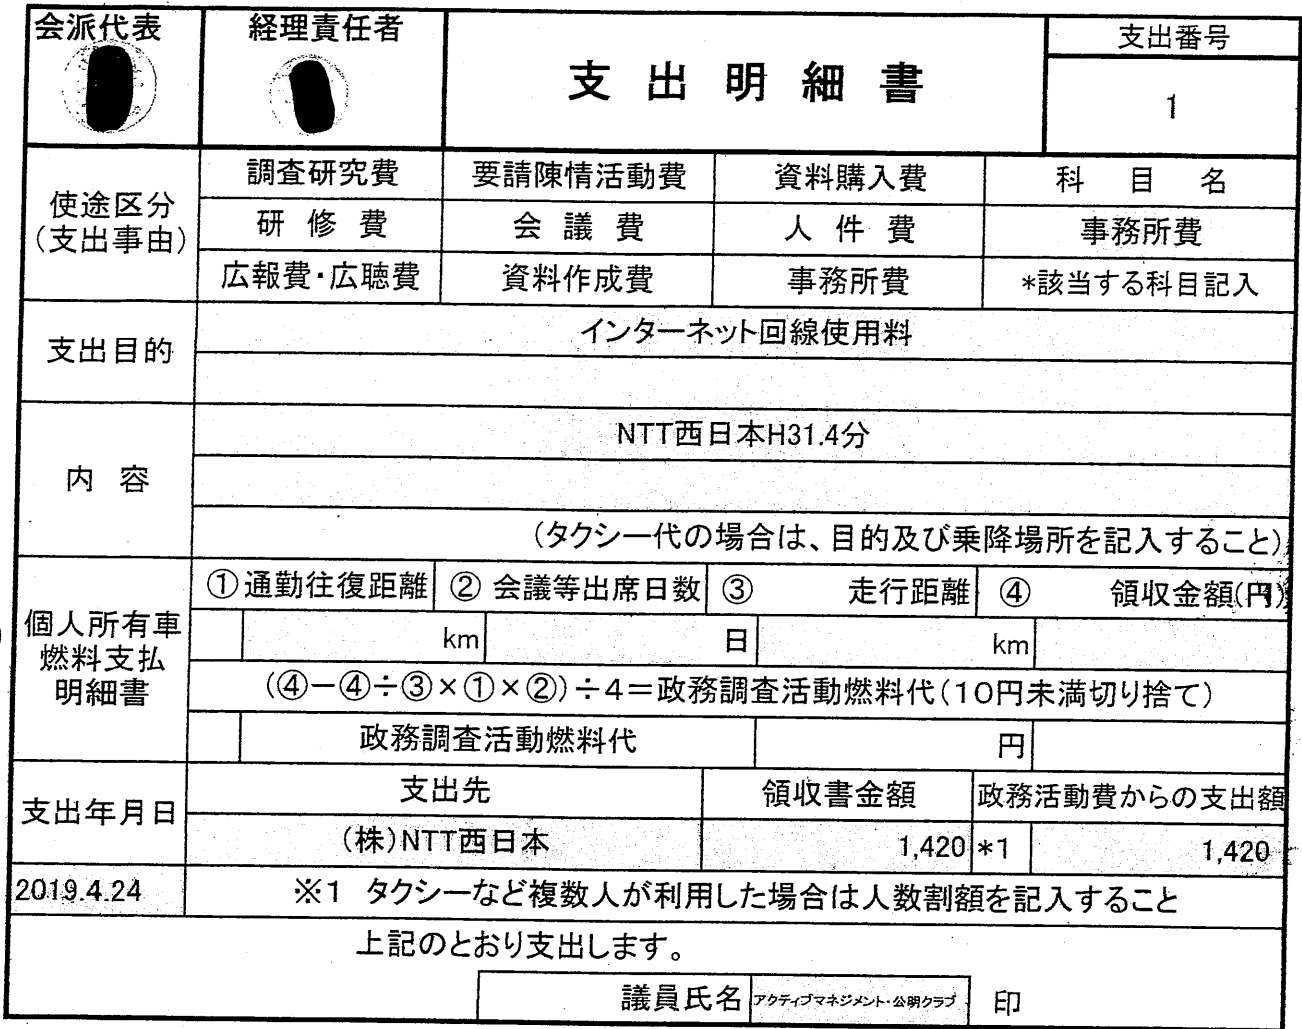 会派代表 経理責任者 支出明細書 支出番号
1
使途区分
(支出事由)
調査研究費 要請陳情活動費 資料購入費 科目名
研修費 会議費 人件費 事務所費
広報費・広聴費 資料作成費 事務所費 *該当する科目記入
支出目的 インターネット回線使用料
内容 NTT西日本H31.4分
(タクシー代の場合は、目的及び乗降場所を記入すること)
個人所有車
燃料支払
明細書
①通勤往復距離 ②会議等出席日数 ③ 走行距離 ④ 領収金額(円)
km 日 km
(④-④÷③×①×②)÷4=政務調査活動燃料代(10円未満切り捨て)
政務調査活動燃料代 円
支出年月日 支出先 領収書金額 政務活動費からの支出額
(株)NTT西日本 1,420 *1 1,420
2019.4.24 ※1 タクシーなど複数人が利用した場合は人数割額を記入すること
上記のとおり支出します。
議員氏名 アクティブマネジメント・公明クラブ 印